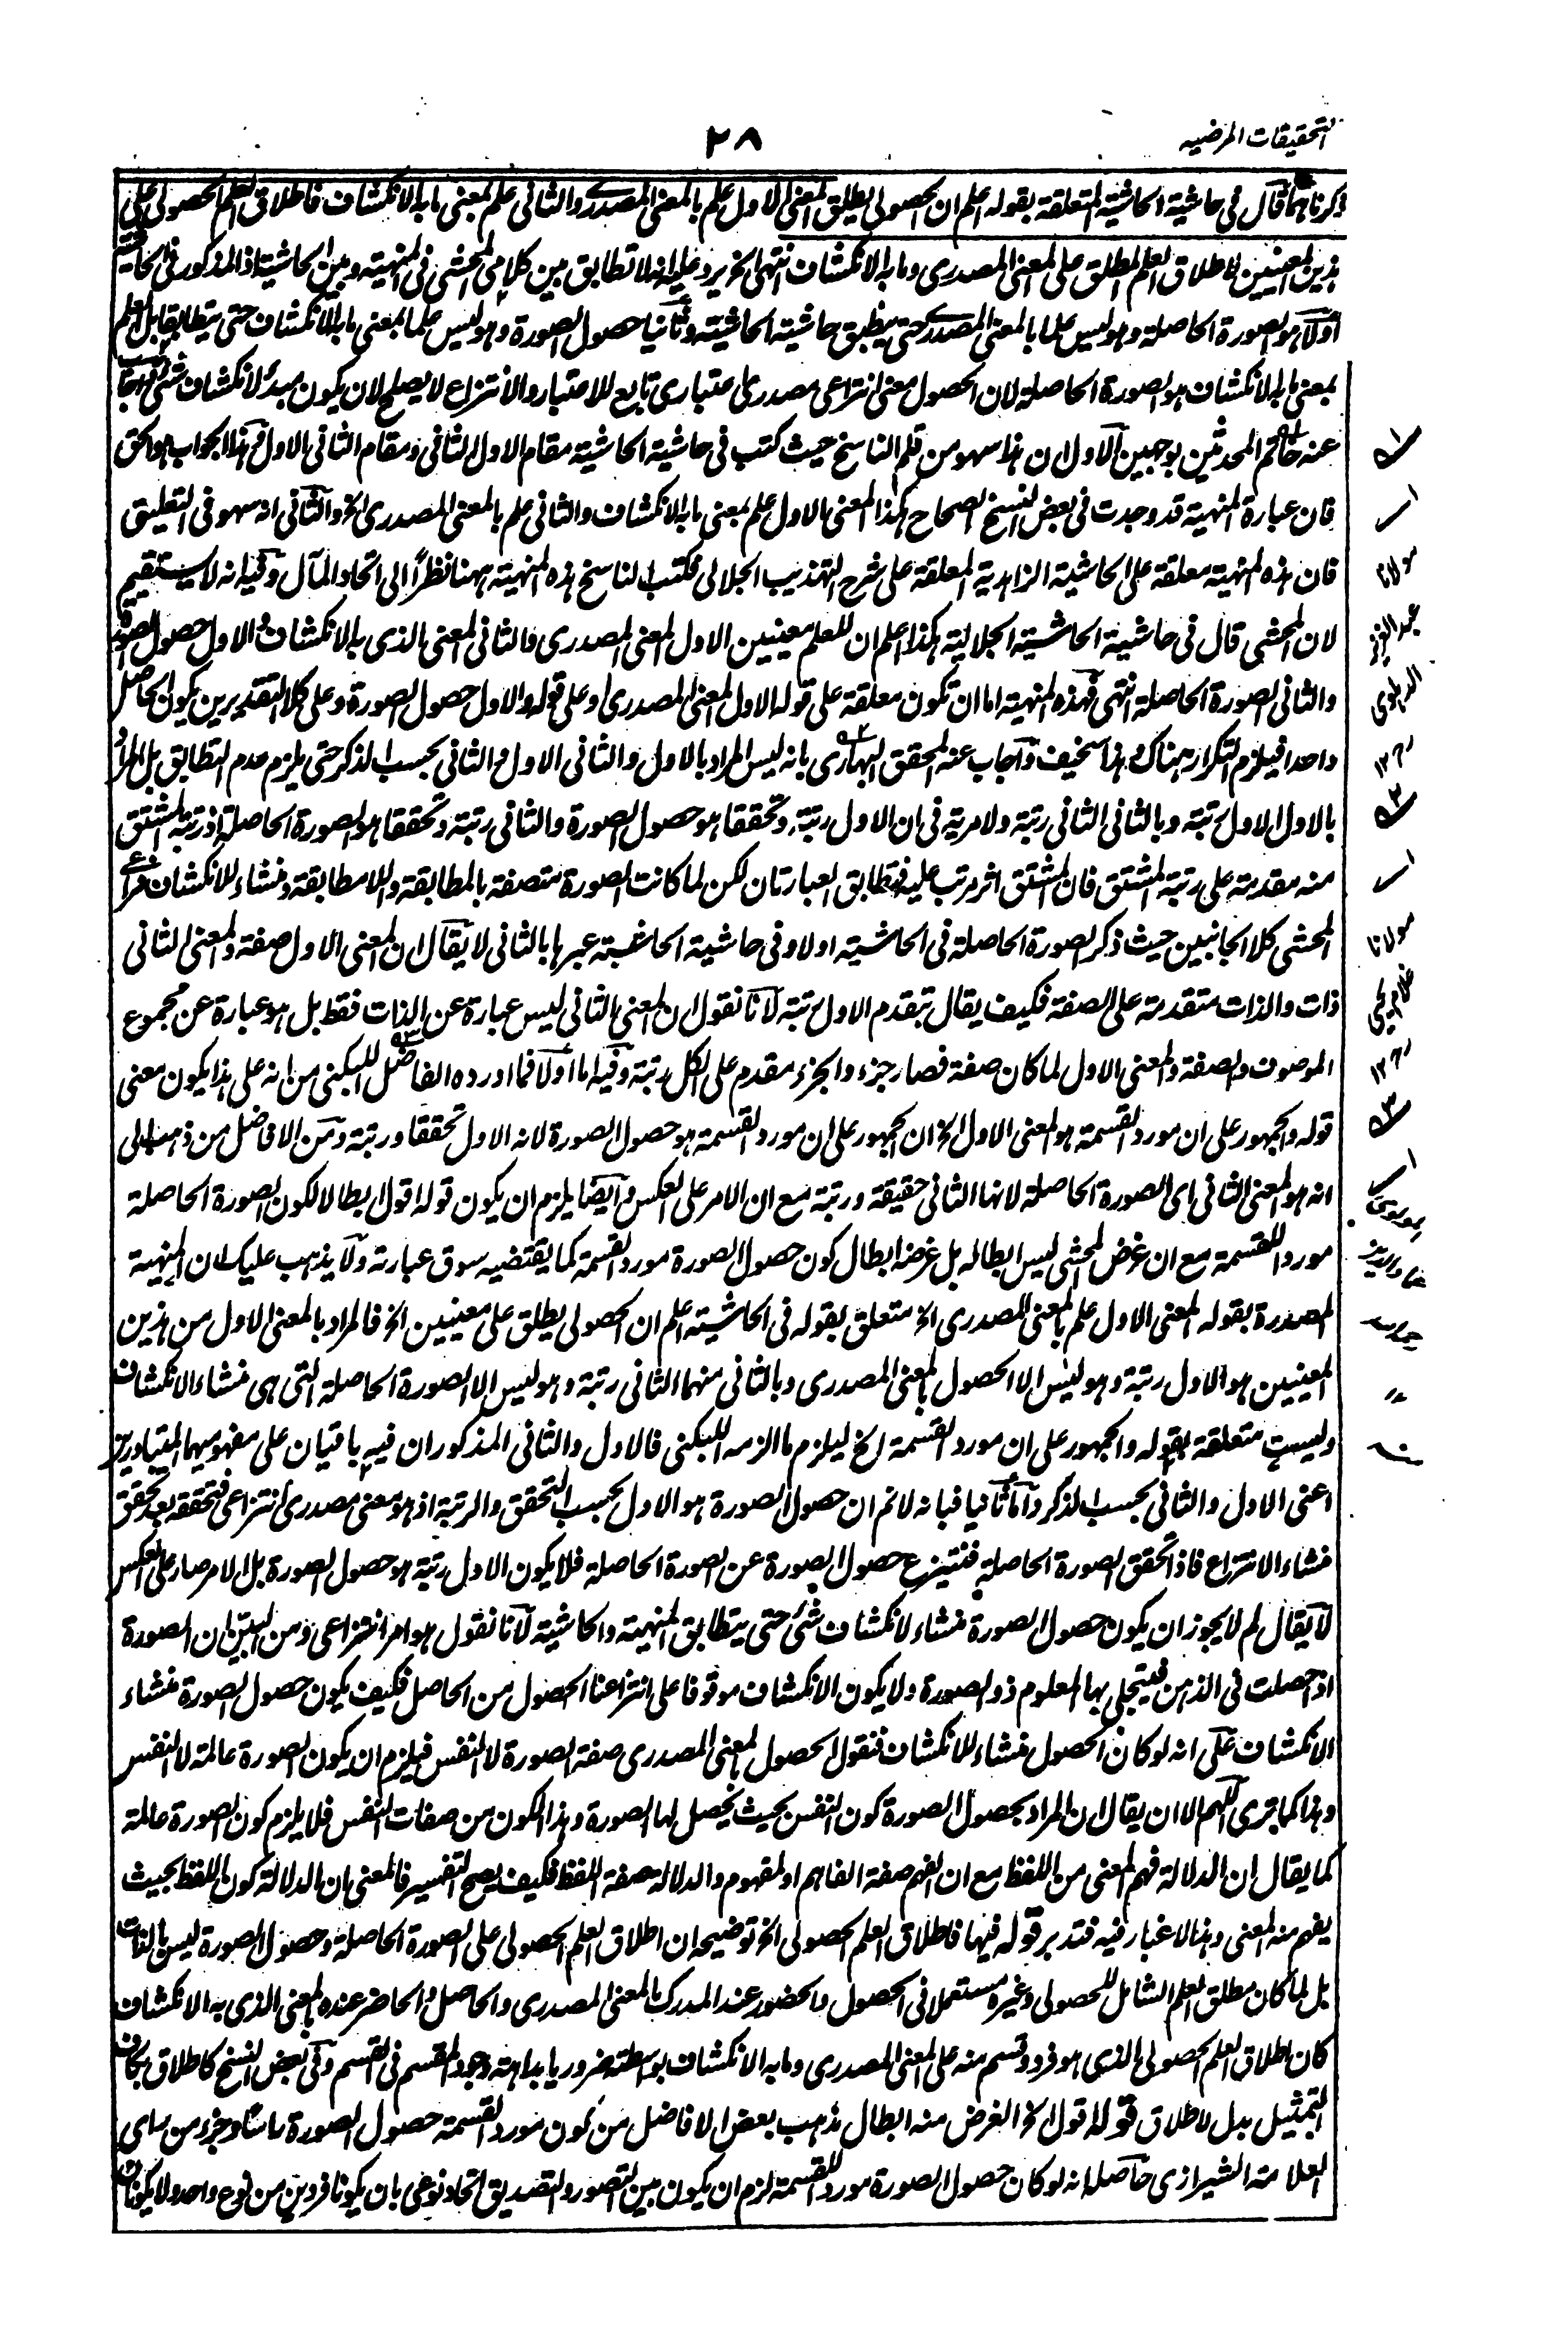 التحقيقات المرضيه
٢٨
ذكرناهما قال فى حاشية الحاشية المتعلقة بقوله اعلم ان الحصولى يطلق المعنى الاول علم بالمعنى المصدرى والثانى علم بمعنى ما به الانكشاف فاطلاق العلم الحصولى على
هذين المعنيين لاطلاق العلم المطلق على المعنى المصدرى وما به الانكشاف انتهى الخ يرد عليه انه لا تطابق بين كلامى المحشى فى المنهية وبين الحاشية اذ المذكور فى الحاشية
اولا هو الصورة الحاصلة وهو ليس علما بالمعنى المصدرى حتى ينطبق حاشية الحاشية وثانيا حصول الصورة وهو ليس علما بمعنى ما به الانكشاف حتى يتطابقا بل العلم
بمعنى ما به الانكشاف هو الصورة الحاصلة لان الحصول معنى انتزاعى مصدرى اعتبارى تابع للاعتبار والانتزاع لا يصلح لان يكون مبدء لانكشاف شئ فاجاب
عنه خاتم المحدثين بوجهين الاول ان هذا سهو من قلم الناسخ حيث كتب فى حاشية الحاشية مقام الاول الثانى ومقام الثانى الاول وهذا الجواب هو الحق
فان عبارة المنهية قد وجدت فى بعض النسخ الصحاح هكذا المعنى الاول علم بمعنى ما به الانكشاف والثانى علم بالمعنى المصدرى الخ والثانى انه سهو فى التعليق
فان هذه المنهية معلقة على الحاشية الزاهدية المعلقة على شرح التهذيب الجلالى فكتب الناسخ هذه المنهية ههنا نظرًا الى اتحاد المآل وفيه انه لا يستقيم
لان المحشى قال فى حاشية الحاشية الجلالية هكذا اعلم ان للعلم معنيين الاول المعنى المصدرى والثانى المعنى الذى به الانكشاف والاول حصول الصورة
والثانى الصورة الحاصلة انتهى فهذه المنهية اما ان تكون معلقة على قوله الاول المعنى المصدرى او على قوله والاول حصول الصورة وعلى كلا التقديرين يكون الحاصل
واحدا فيلزم التكرار هناك وهذا سخيف واجاب عنه المحقق البهارى بانه ليس المراد بالاول والثانى الاول والثانى بحسب الذكر حتى يلزم عدم التطابق بل المراد
بالاول الاول رتبة وبالثانى الثانى رتبة ولا مرية فى ان الاول رتبة وتحققا هو حصول الصورة والثانى رتبة وتحققا هو الصورة الحاصلة اذ رتبة المشتق
منه مقدمة على رتبة المشتق فان المشتق اثر مرتب عليه فتطابق العبارتان لكن لما كانت الصورة متصفة بالمطابقة واللامطابقة ومنشاء للانكشاف راعى
المحشى كلا الجانبين حيث ذكر الصورة الحاصلة فى الحاشية اولا وفى حاشية الحاشية عبرها بالثانى لا يقال ان المعنى الاول صفة والمعنى الثانى
ذات والذات متقدمة على الصفة فكيف يقال بتقدم الاول رتبة لانا نقول ان المعنى الثانى ليس عبارة عن الذات فقط بل هو عبارة عن مجموع
الموصوف والصفة والمعنى الاول لما كان صفة فصار جزء والجزء مقدم على الكل رتبة وفيه اما اولا فما اورده الفاضل اللبكنى من انه على هذا يكون معنى
قوله والجمهور على ان مورد القسمة هو المعنى الاول الخ ان الجمهور على ان مورد القسمة هو حصول الصورة لانه الاول تحققا ورتبة ومن الافاضل من ذهب الى
انه هو المعنى الثانى اى الصورة الحاصلة لانها الثانى حقيقة ورتبة مع ان الامر على العكس وايضا يلزم ان يكون قوله اقول ابطالا لكون الصورة الحاصلة
مورد القسمة مع ان غرض المحشى ليس ابطاله بل غرضه ابطال كون حصول الصورة مورد القسمة كما يقتضيه سوق عبارته ولا يذهب عليك ان المنهية
المصدرة بقوله المعنى الاول علم بالمعنى المصدرى الخ متعلق بقوله فى الحاشية اعلم ان الحصولى يطلق على معنيين الخ فالمراد بالمعنى الاول من هذين
المعنيين هو الاول رتبة وهو ليس الا الحصول بالمعنى المصدرى وبالثانى منهما الثانى رتبة وهو ليس الا الصورة الحاصلة التى هى منشاء الانكشاف
وليست متعلقة بقوله والجمهور على ان مورد القسمة الخ ليلزم ما الزمه اللبكنى فالاول والثانى المذكوران فيه باقيان على مفهوميهما المتبادرين
اعنى الاول والثانى بحسب الذكر واما ثانيا فبانه لا نم ان حصول الصورة هو الاول بحسب التحقق والرتبة اذ هو معنى مصدرى انتزاعى فتحققه بعد تحقق
منشاء الانتزاع فاذا تحقق الصورة الحاصلة فينتزع حصول الصورة عن الصورة الحاصلة فلا يكون الاول رتبة هو حصول الصورة بل الامر صار على العكس
لا يقال لم لا يجوز ان يكون حصول الصورة منشاء لانكشاف شئ حتى يتطابق المنهية والحاشية لانا نقول هو امر انتزاعى ومن البين ان الصورة
اذا حصلت فى الذهن فيتجلى بها المعلوم ذو الصورة ولا يكون الانكشاف موقوفا على انتزاعنا الحصول من الحاصل فكيف يكون حصول الصورة منشاء
الانكشاف على انه لو كان الحصول منشاء للانكشاف فنقول الحصول بالمعنى المصدرى صفة الصورة لا النفس فيلزم ان يكون الصورة عالمة لا النفس
وهذا كما ترى اللهم الا ان يقال ان المراد بحصول الصورة كون النفس بحيث يحصل لها الصورة وهذا الكون من صفات النفس فلا يلزم كون الصورة عالمة
كما يقال ان الدلالة فهم المعنى من اللفظ مع ان الفهم صفة الفاهم او المفهوم والدلالة صفة اللفظ فكيف يصح التفسير فالمعنى بان الدلالة كون اللفظ بحيث
يفهم منه المعنى وهذا لا غبار فيه فتدبر قوله فيها فاطلاق العلم الحصولى الخ توضيحه ان اطلاق العلم الحصولى على الصورة الحاصلة وحصول الصورة ليس بالذات
بل لما كان مطلق العلم الشامل للحصولى وغيره مستعملا فى الحصول والحضور عند المدرك بالمعنى المصدرى والحاصل والحاضر عنده بالمعنى الذى به الانكشاف
كان اطلاق العلم الحصولى الذى هو فرد وقسم منه على المعنى المصدرى وما به الانكشاف بواسطته ضروريا بداهة وجود المقسم فى القسم وفى بعض النسخ كاطلاق بكاف
التمثيل بدل لاطلاق قوله اقول الخ الغرض منه ابطال مذهب بعض الافاضل من كون مورد القسمة حصول الصورة
العلامة الشيرازى حاصله انه لو كان حصول الصورة مورد القسمة لزم ان يكون بين التصور والتصديق اتحاد نوعى بان يكونا فردين من نوع واحد ولا يكونان
مولانا
عبد العزيز
الدهلوى
مولانا
غلام يحيى